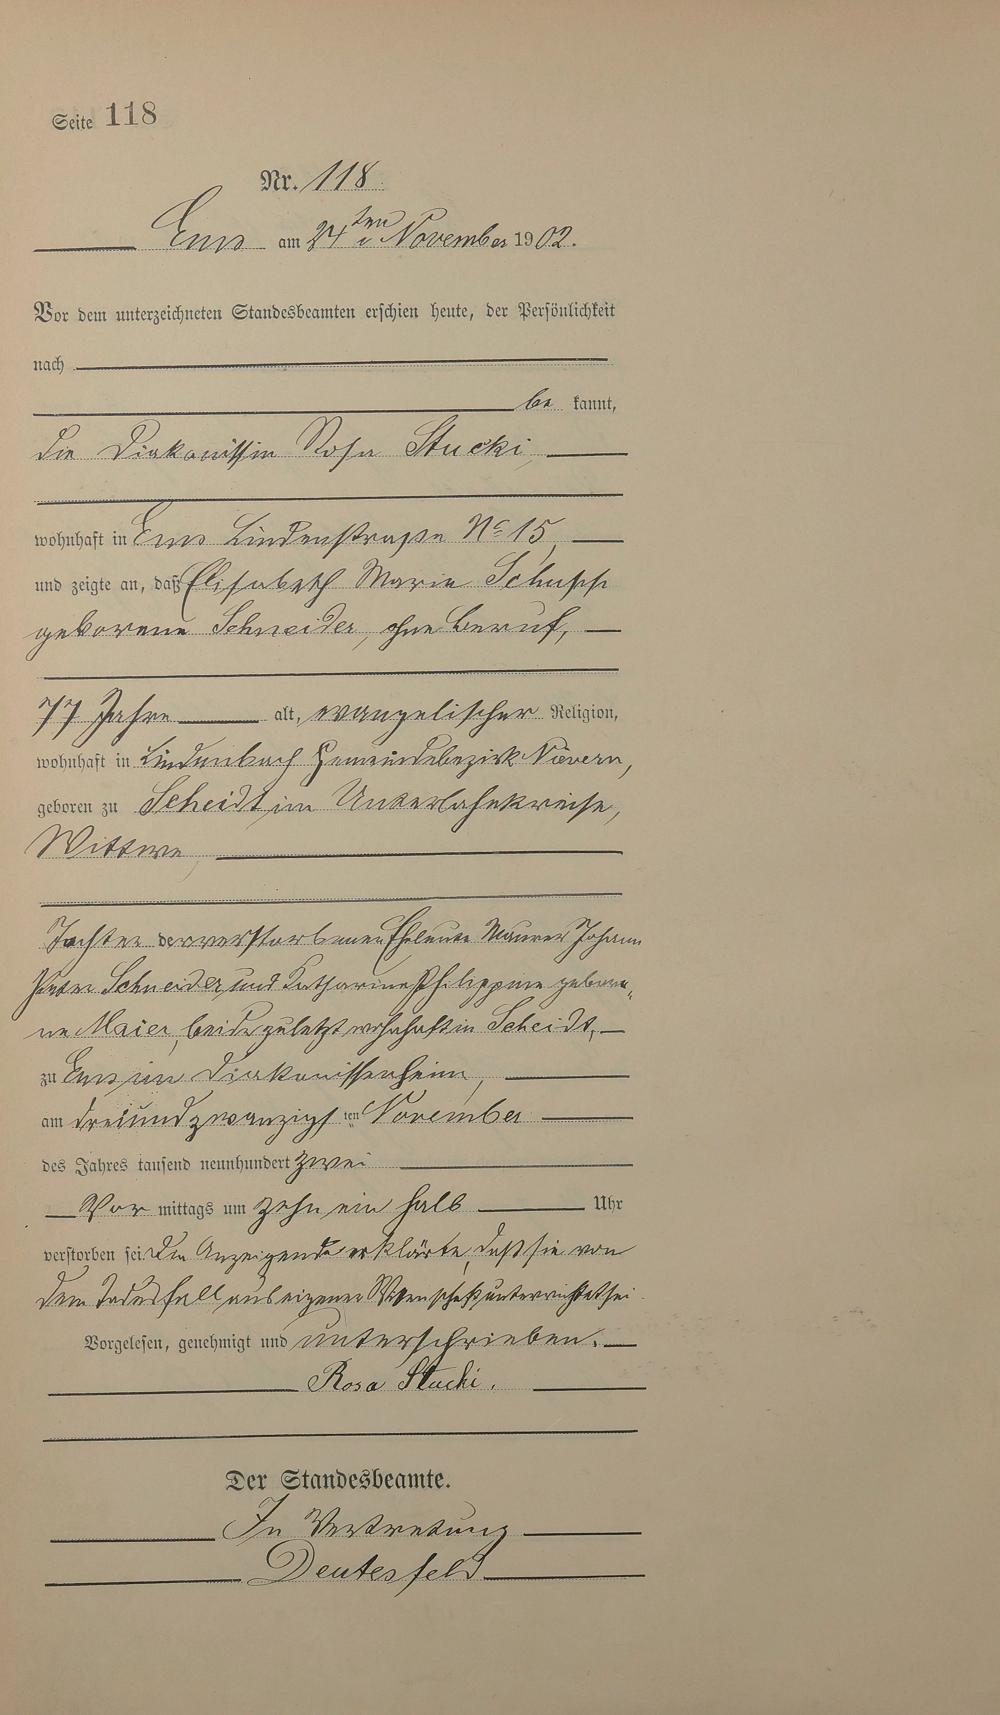 Seite 118
Nr. 118.
Ems am 24ten November 1902.
Vor dem unterzeichneten Standesbeamten erschien heute, der Persönlichkeit
nach
be kannt,
die Diakonissin Rosa Stucki,
wohnhaft in Ems Lindenstraße No 15,
und zeigte an, daß Elisabeth Marie Schupp
geborene Schneider, ohne Beruf,
77 Jahre alt, evangelischer Religion,
wohnhaft in Lindenbach Gemeindebezirk Nievern,
geboren zu Scheidt im Unterlahnkreise,
Wittwe,
Tochter der verstorbenen Eheleute Maurer Johann
Peter Schneider und Katharine Philippine gebore„
ne Maier, beide zuletzt wohnhaft in Scheidt,
zu Ems im Diakonissenheim,
am dreiundzwanzigsten November
des Jahres tausend neunhundert zwei
Vor mittags um zehn ein halb Uhr
verstorben sei. Die Anzeigende erklärte, daß sie von
dem Todesfall aus eigener Wissenschaft unterrichtet sei.
Vorgelesen, genehmigt und unterschrieben.
Rosa Stucki.
Der Standesbeamte.
In Vertretung
Deutesfeld